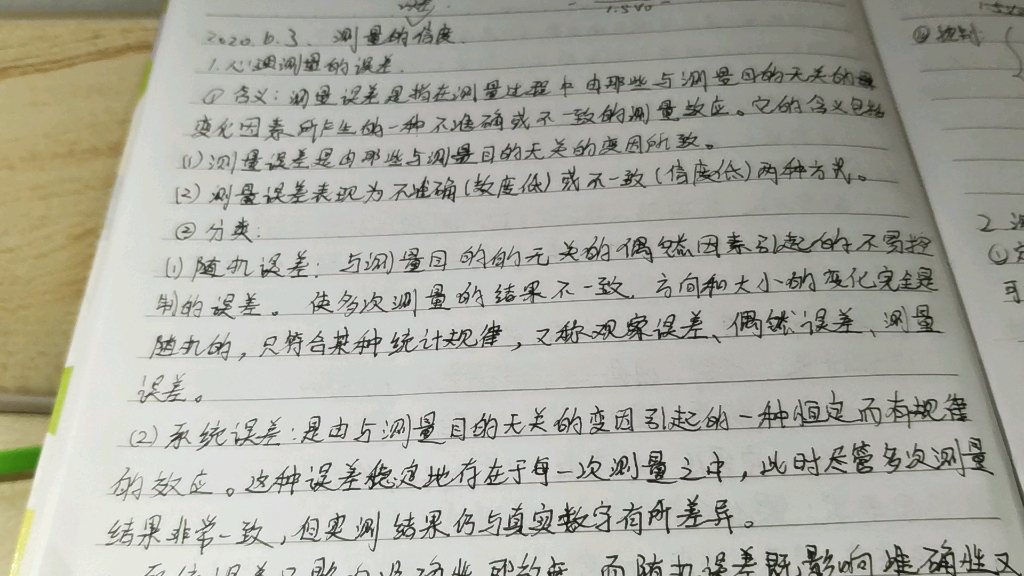 1.540
2020.6.3. 测量的信度
1.心理测量的误差.
① 含义:测量误差是指在测量过程中由那些与测量目的无关的
变化因素所产生的一种不准确或不一致的测量效应。它的含义包括
(1)测量误差是由那些与测量目的无关的变因所致。
(2)测量误差表现为不准确(效度低)或不一致(信度低)两种方式。
② 分类:
(1)随机误差:与测量目的的无关的偶然因素引起的不易控
制的误差。使多次测量的结果不一致.方向和大小的变化完全是
随机的,只符合某种统计规律,又称观察误差、偶然误差、测量
误差。
(2)系统误差:是由与测量目的无关的变因引起的一种恒定而有规律
的效应。这种误差稳定地存在于每一次测量之中,此时尽管多次测量
结果非常一致,但实测结果仍与真实数字有所差异。
而随机误差既影响准确性又
2.
①
可